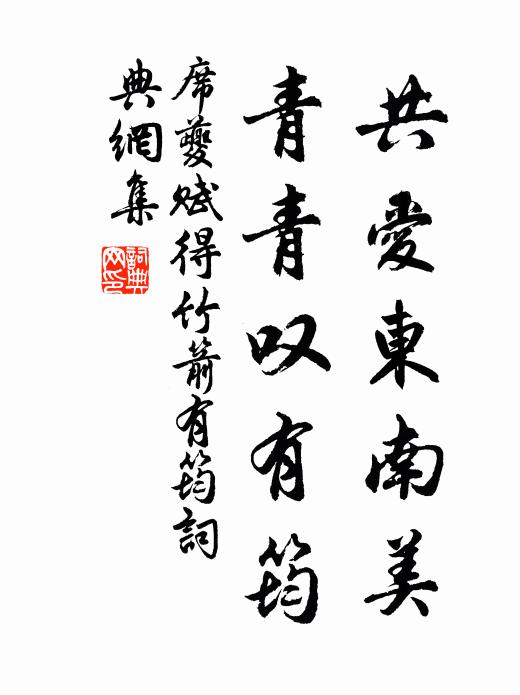 共愛東南美
青青叹有筠
席夔赋得竹箭有筠詞
典網集
詞典网印